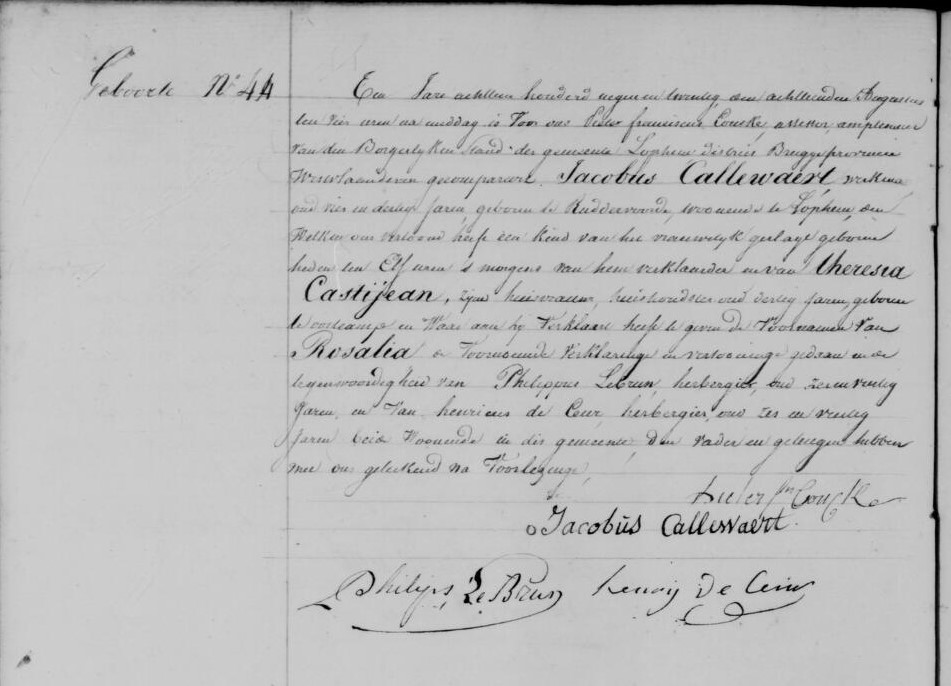 Geboorte N° 44
Een Jare achttien honderd negen en twintig den achttienden Augustus
ten vier uren na middag is Voor ons Pieter franciscus Coucke, assessor, amptenaer
Van den Borgerlyken Stand der gemeente Lophem district Brugge provincie
Westvlaanderen gecompareert Jacobus Callewaert werkman
oud vier en dertig Jaren, geboren te Ruddervoorde, woonende te Lophem, den
Welken ons vertoond heeft een kind van het vrouwelyk geslagt geboren
heden ten Elf uren 's morgens van hem verklaarder en van theresia
Castijean, zyne huisvrouw, huishoudster oud dertig Jaren, geboren
te oostcamp en Waar aen hy Verklaart heeft te geven de Voornamen Van
Rosalia de Voornoemde Verklaringe en vertooninge gedaan in de
tegenwoordigheid van Philippus Lebrun, herbergier, oud zes en veertig
Jaren, en Van henricus de Ceur herbergier, oud zes en veertig
Jaren beide Woonende in dit gemeente, Den Vader en getuigen hebben
met ons geteekend na Voorlezinge,
Pieter fn Coucke
Jacobüs Callewaert
Philips Le Brun henry De Ceur